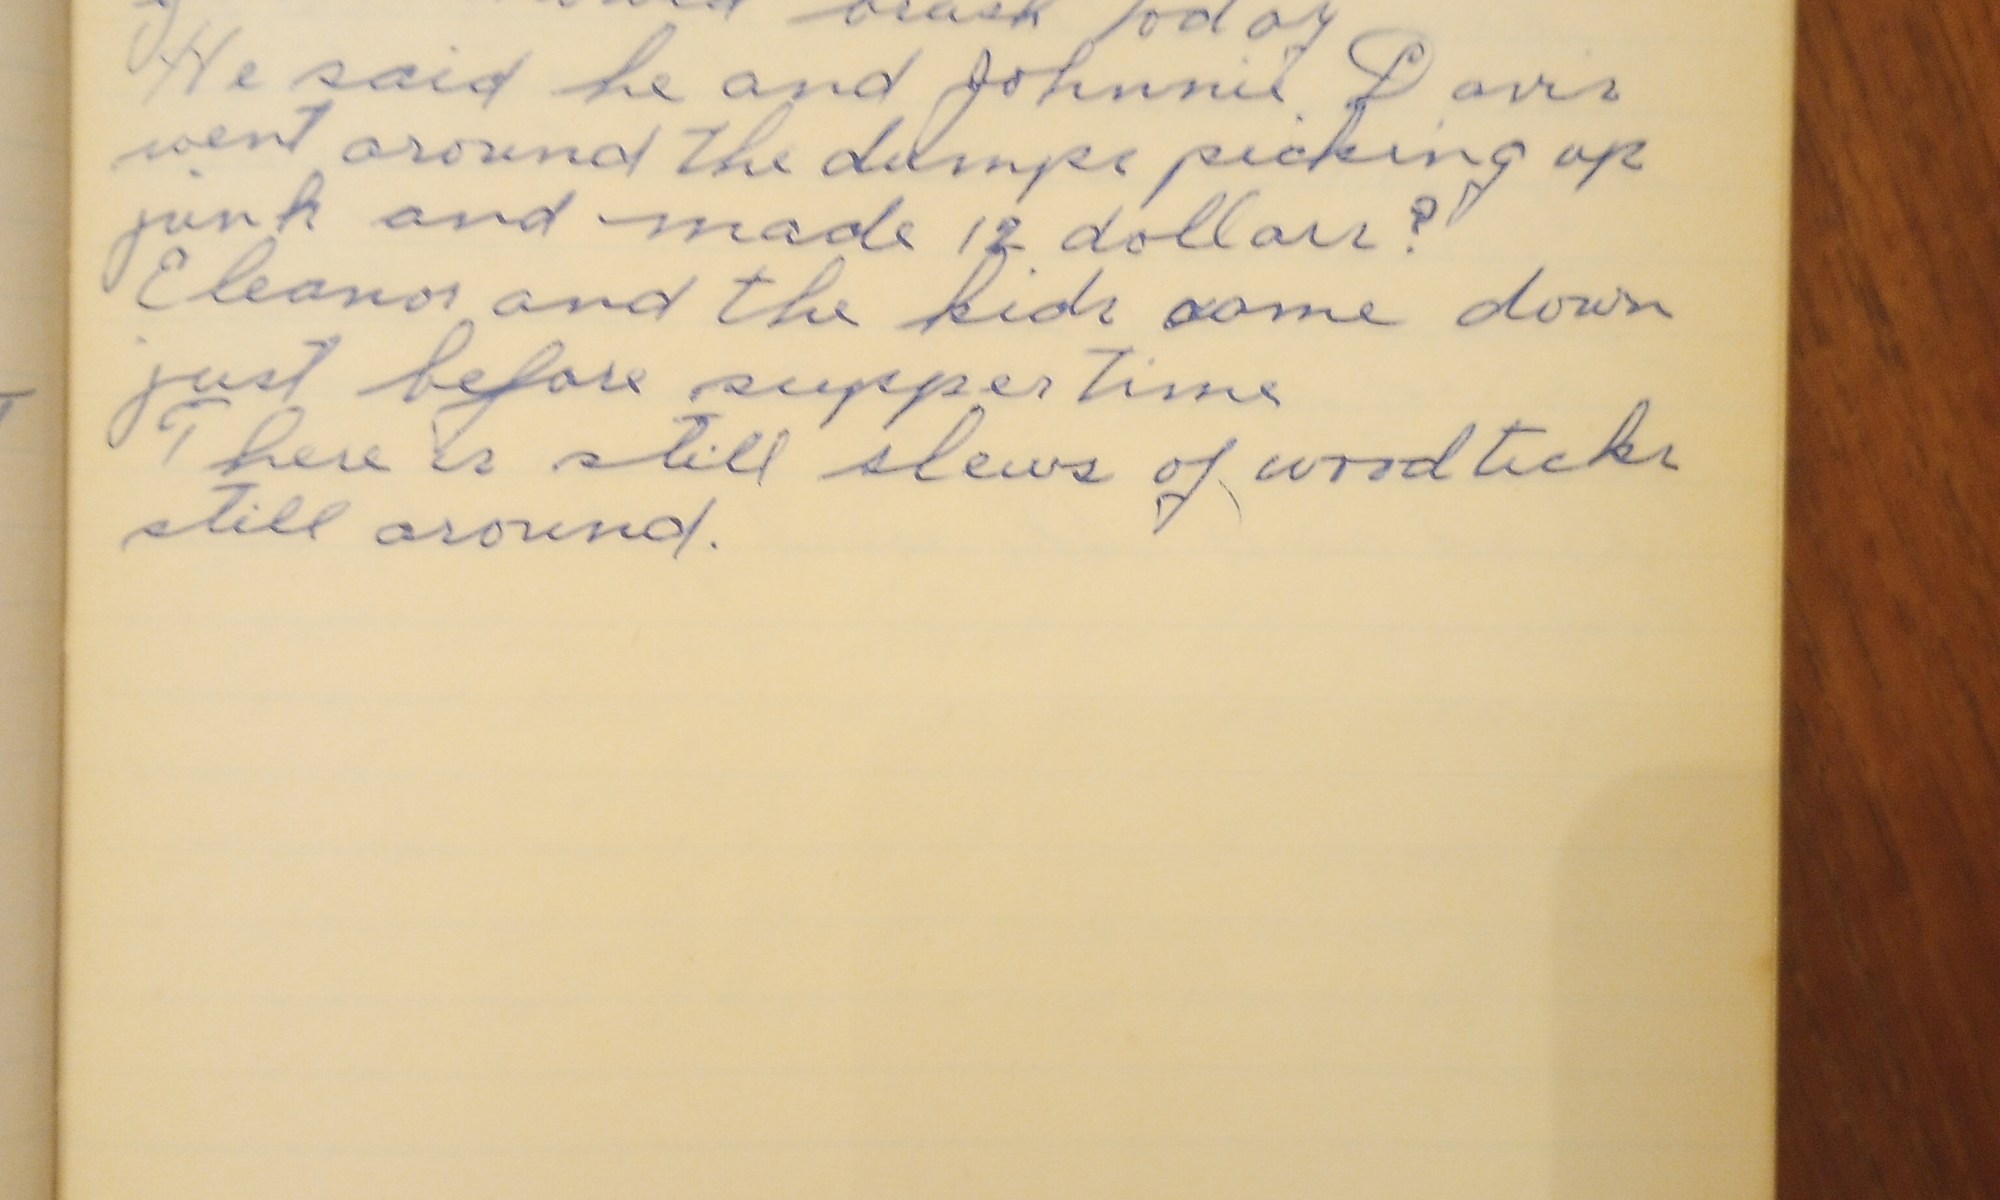 brush today
He said he and Johnnie Davis
went around the dumps picking up
junk and made 12 dollars?
Eleanor and the kids came down
just before supper time
There is still slews of woodticks
still around.